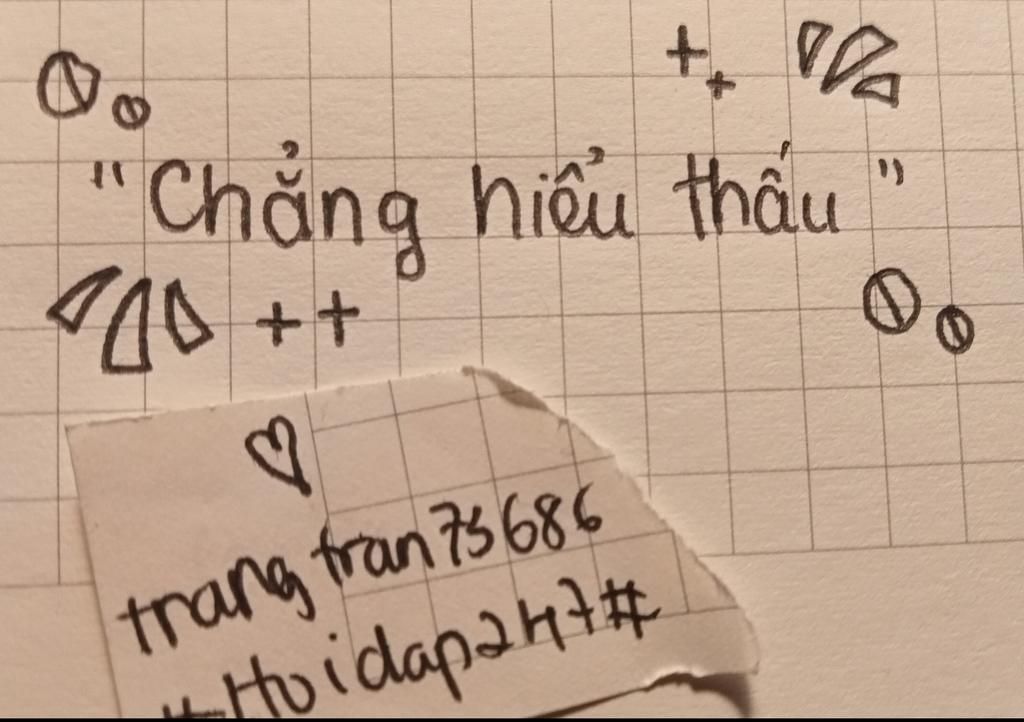 "Chẳng hiểu thấu"
trangtran75686
#Hoidap247#